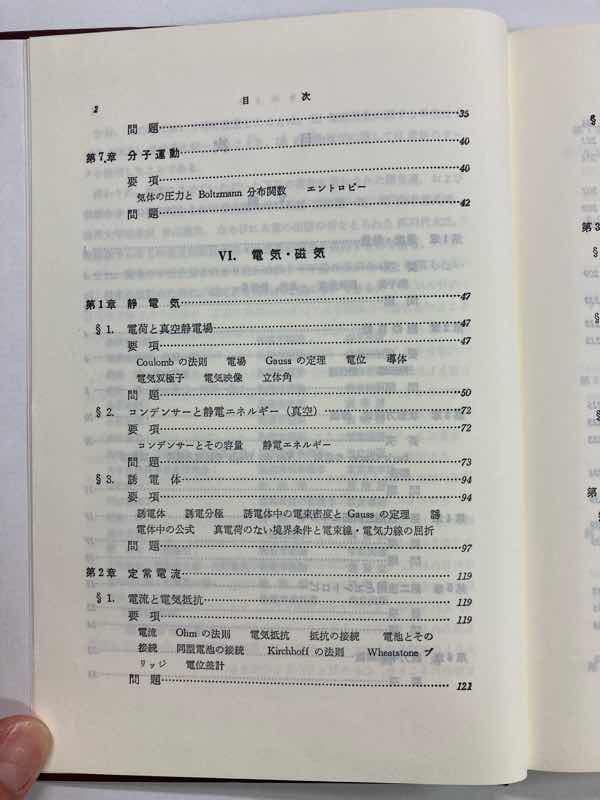 2 目次
問題 35
第7章 分子運動 40
要項 40
気体の圧力と Boltzmann 分布関数 エントロピー
問題 42
VI. 電気・磁気
第1章 静電気 47
§1. 電荷と真空静電場 47
要項 47
Coulomb の法則 電場 Gauss の定理 電位 導体
電気双極子 電気映像 立体角
問題 50
§2. コンデンサーと静電エネルギー(真空) 72
要項 72
コンデンサーとその容量 静電エネルギー
問題 73
§3. 誘電体 94
要項 94
誘電体 誘電分極 誘電体中の電束密度と Gauss の定理 誘
電体中の公式 真電荷のない境界条件と電束線・電気力線の屈折
問題 97
第2章 定常電流 119
§1. 電流と電気抵抗 119
要項 119
電流 Ohm の法則 電気抵抗 抵抗の接続 電池とその
接続 同型電池の接続 Kirchhoff の法則 Wheatstone ブ
リッジ 電位差計
問題 121
§
第3
§
§
第
§